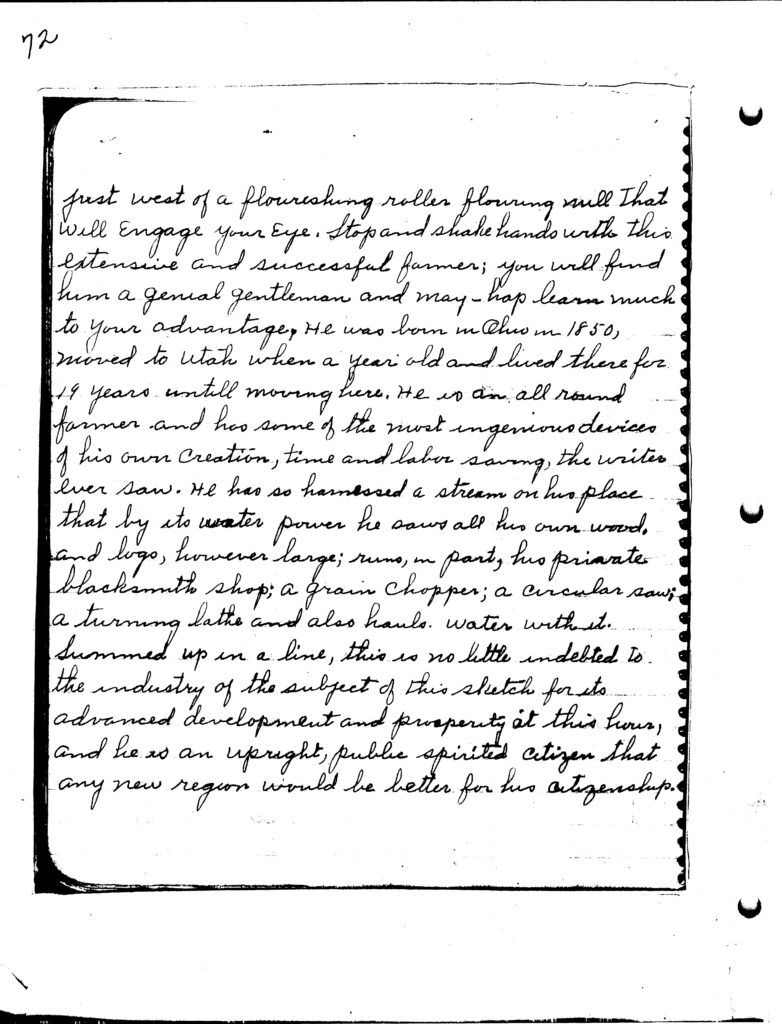 72
just west of a floureshing roller flouring mill That
Will Engage your Eye. Stop and shake hands with this
extensive and successful farmer; you will find
him a genial gentleman and may-hap learn much
to your advantage, He was born in Ohio in 1850,
moved to Utah when a year old and lived there for
19 years untill moving here. He is an all round
farmer and has some of the most ingenious devices
of his own Creation, time and labor saving, the writer
ever saw. He has so harnessed a stream on his place
that by its water power he saws all his own wood.
and logs, however large; runs, in part, his private
blacksmith shop; a grain Chopper; a circular saw;
a turning lathe and also hauls. water with it.
Summed up in a line, this is no little indebted to
the industry of the subject of this sketch for its
advanced development and prosperity at this hour,
and he is an upright, public spirited citizen that
any new region would be better for his citizenship.